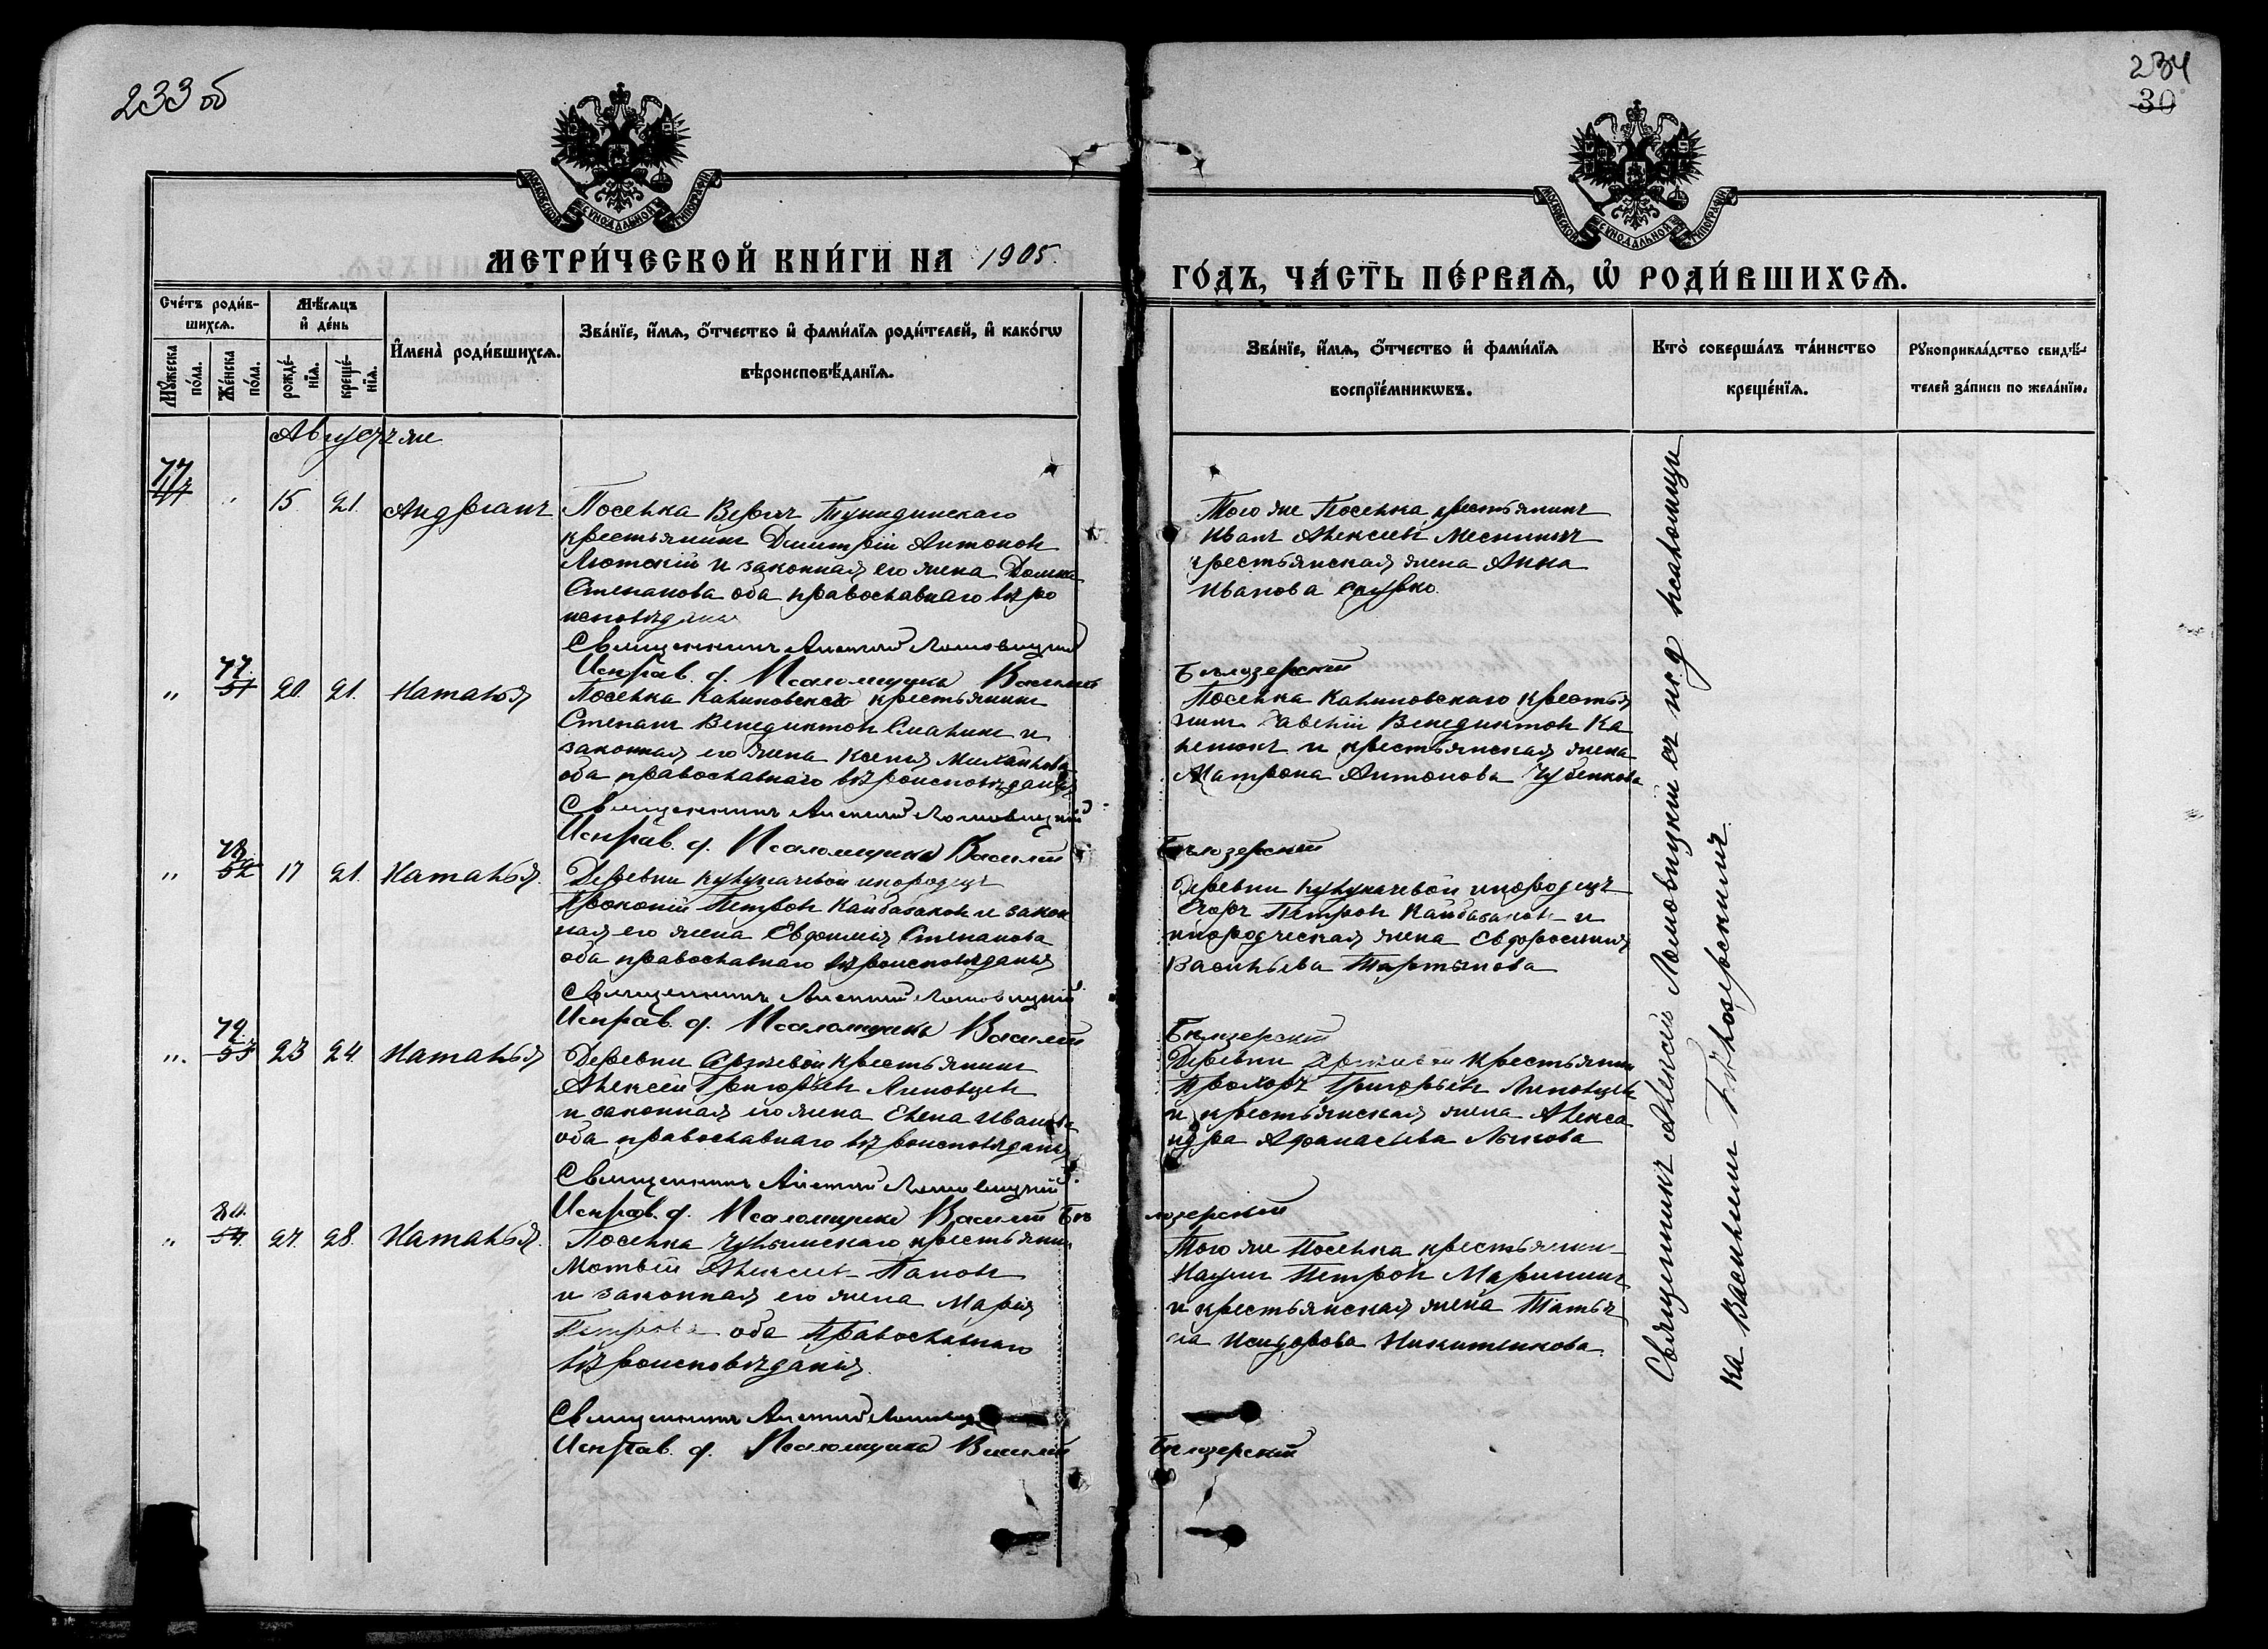 233 об
234
30
МЕТРИ́ЧЕСКОЙ КНИ́ГИ НА 1905.
ГО́ДЪ, ЧА́СТЬ ПЕ́РВАѦ, Ѡ҆ РОДИ́ВШИХСѦ.
Сче́тъ роди́в-
шихсѧ.
Мꙋ́жеска по́ла.
Же́нска по́ла.
Мѣ́сѧцъ
и҆ де́нь
рожде́-
нїѧ.
креще́-
нїѧ.
И҆мена̀ роди́вшихсѧ.
Зва́нїе, и҆́мѧ, ѻ҆́тчество и҆ фами́лїѧ роди́телей, и҆ како́гѡ
вѣроисповѣ́данїѧ.
Зва́нїе, и҆́мѧ, ѻ҆́тчество и҆ фами́лїѧ
воспрїе́мникѡвъ.
Кто̀ соверша́лъ та́инство
креще́нїѧ.
Рꙋкоприкла́дство свидѣ́-
телей за́писи по жела́нїю.
Августъ же
77
15 21 Андріанъ
Поселка Верхъ
крестьянинъ Димитрій Антоновъ
и законная его жена Домна
Степанова оба православнаго вѣро
исповѣданія
Священникъ Алексій Ломовицкій
Исправ. д. Псаломщика Василій
Бѣлозерскій
Того же Поселка крестьянинъ
Иванъ Алексѣевъ
крестьянская жена Анна
Иванова
77.
51
20. 21. Наталья
Поселка Калиновскаго крестьянинъ
Степанъ Венедиктовъ и
законная его жена Ксенія Михайлова
оба православнаго вѣроисповѣданія
Священникъ Алексій Ломовицкій
Исправ. д. Псаломщика Василій
Бѣлозерскій
Поселка Калиновскаго крестья
нинъ Савелій Венедиктовъ Ка
и крестьянская жена
Матрона Антонова Чубенкова
78.
52
17 21. Наталья.
Деревни инородецъ
Прокопій Петровъ Кайбазаковъ и закон
ная его жена Евфимія Степанова
оба православнаго вѣроисповѣданія
Священникъ Алексій Ломовицкій
Исправ. д. Псаломщика Василій
Бѣлозерскій
Деревни инородецъ
Егоръ Петровъ Кайбазаковъ и
инородческая жена Евфросинія
Васильева
79.
53
23 24. Наталья
Деревни крестьянинъ
Алексѣй Григорьевъ Липовцевъ
и законная его жена Елена Иванова
оба православнаго вѣроисповѣданія
Священникъ Алексій Ломовицкій
Исправ. д. Псаломщика Василій Бѣ
лозерскій
Деревни крестьянинъ
Прохоръ Григорьевъ Липовцевъ
и крестьянская жена Алекса
ндра Афанасьева Лыкова
80.
54.
27. 28. Наталья.
Поселка Чулымскаго крестьянинъ
Матвѣй Алексѣевъ Поповъ
и законная его жена Марія
Петрова оба Православнаго
вѣроисповѣданія.
Священникъ Алексій
Исправ. д. Псаломщика Василій
Бѣлозерскій
Того же Поселка крестьянинъ
Наумъ Петровъ Марининъ
и крестьянская жена Татья
на Исидорова Никитенкова.
Священникъ Алексій Ломовицкій съ и. д. псаломщи
ка Василіемъ Бѣлозерскимъ.